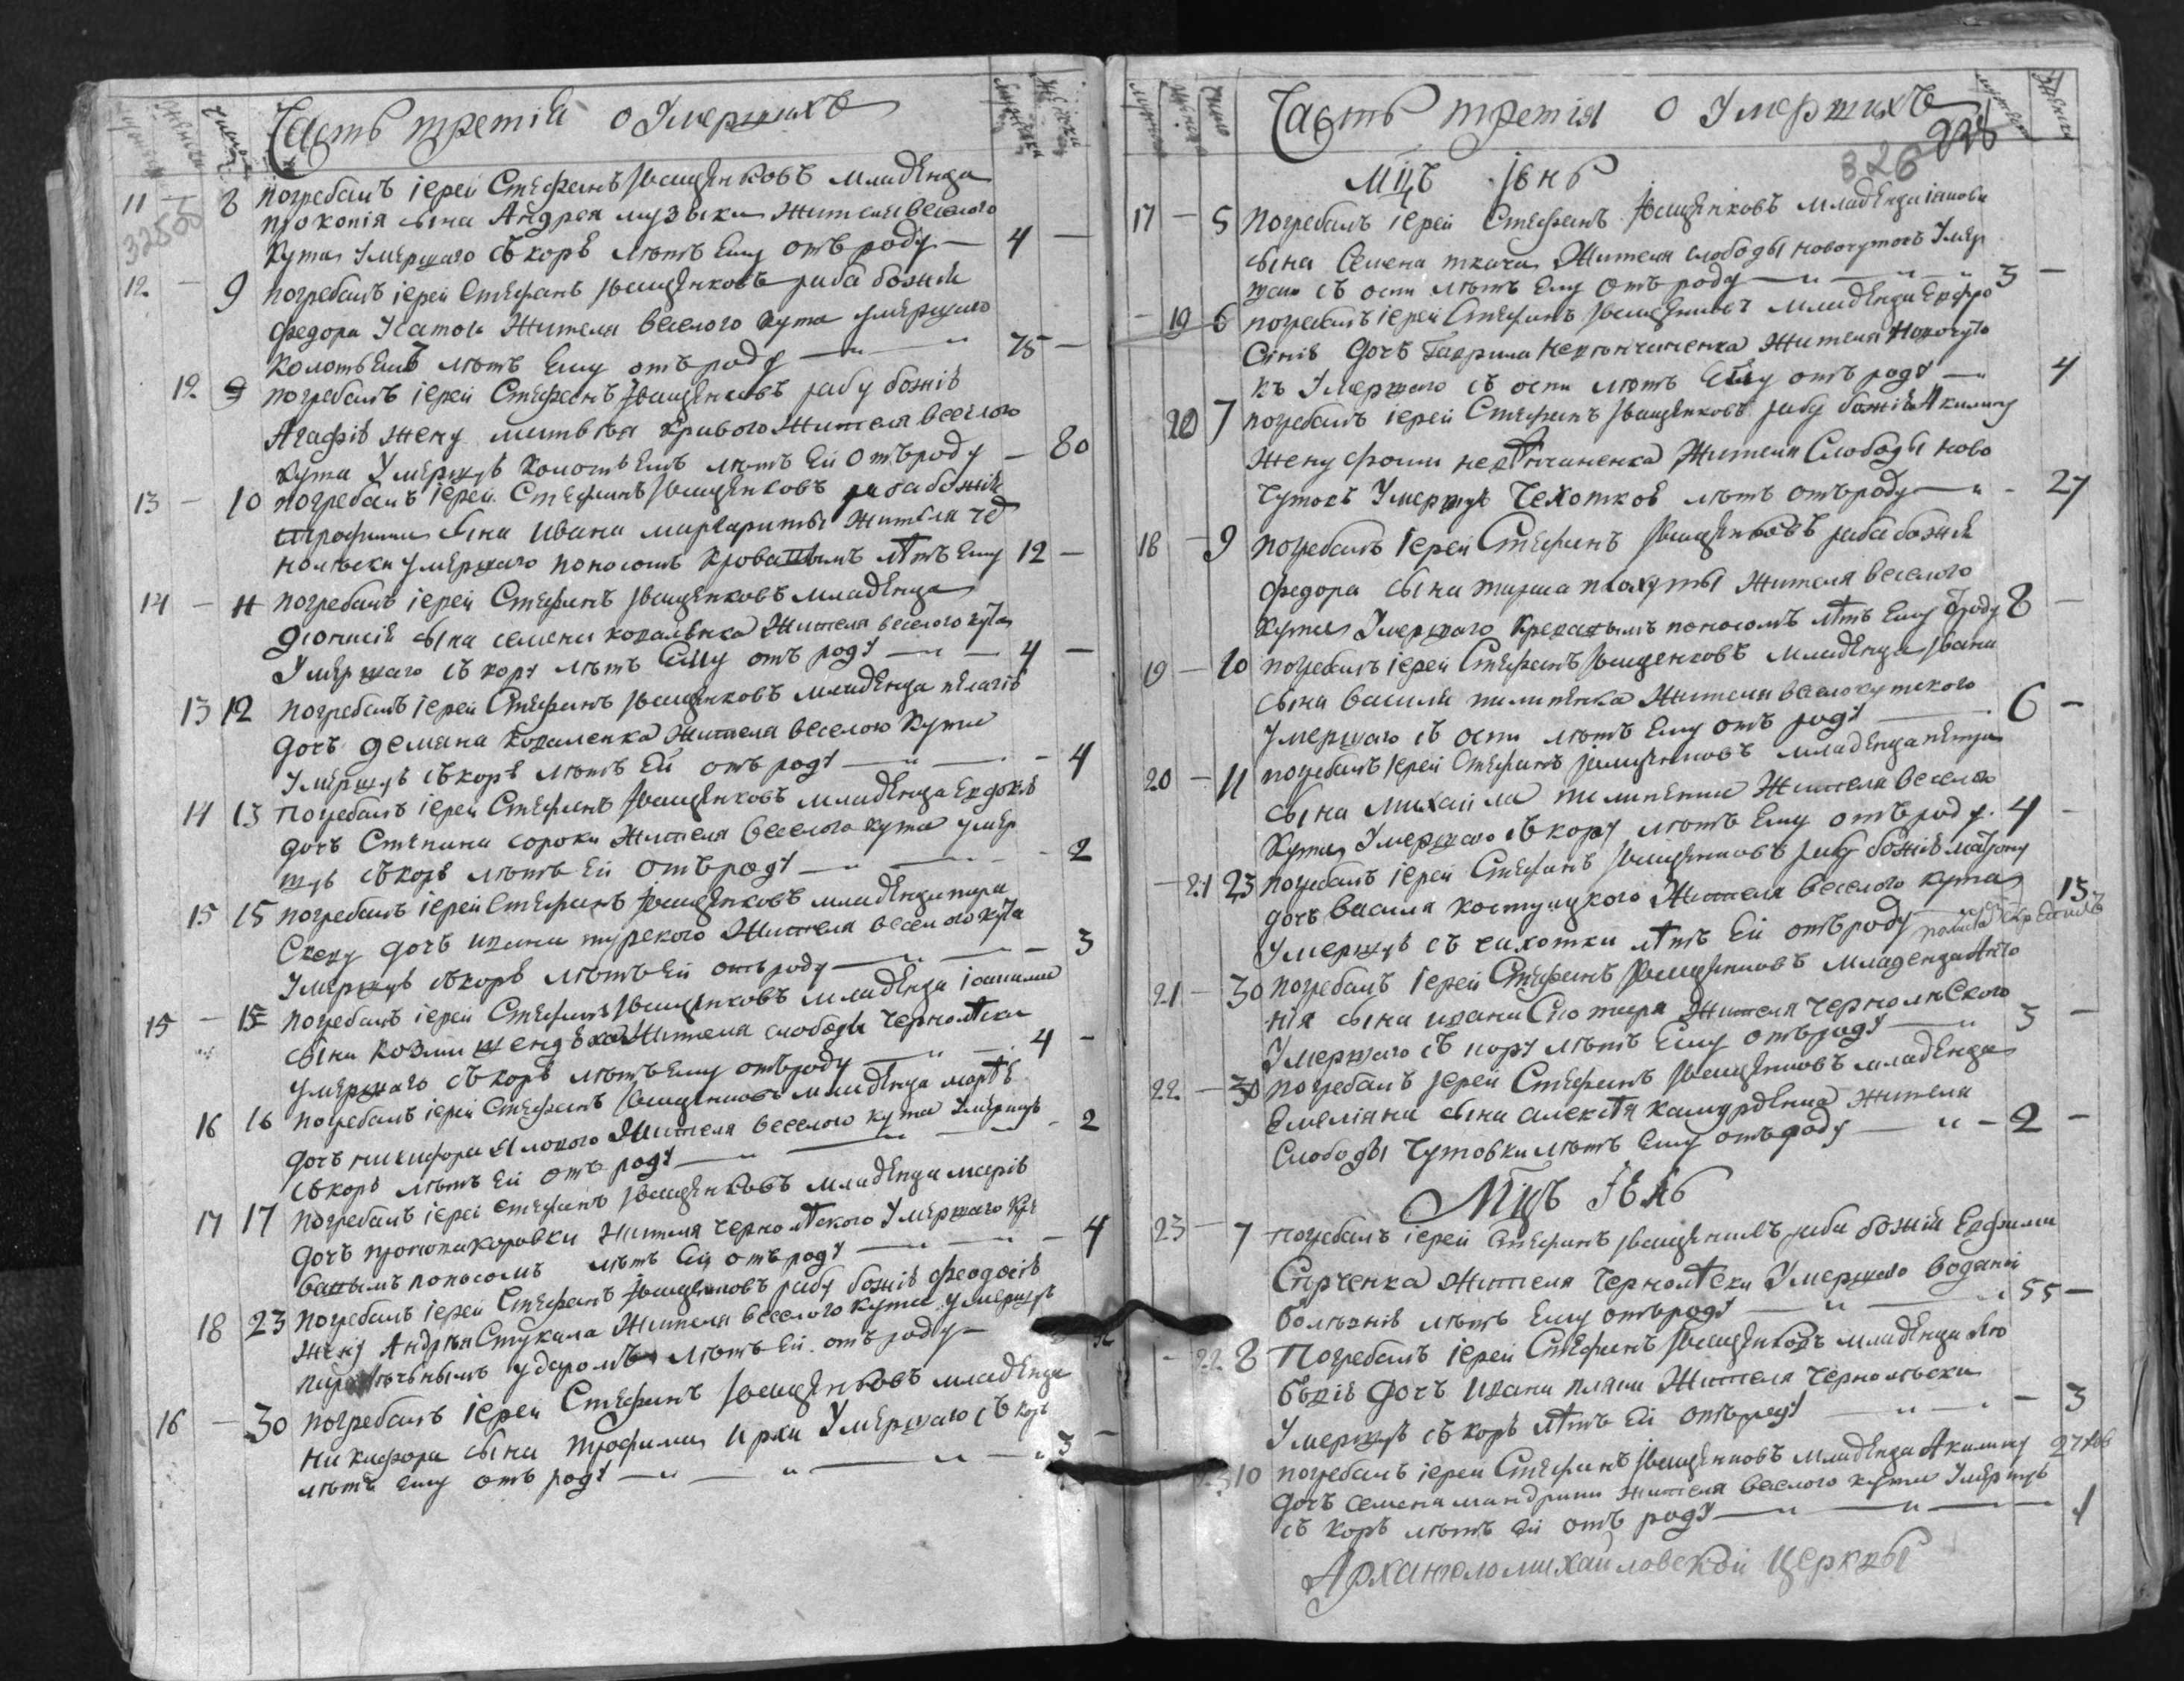 Часть третія о Умершихъ
11 — 8 погребалъ іерей Стефанъ Іващенковъ младенца
прокопія сына Андрея музыки жителя веселого
Кута умершаго съ коръ лѣтъ ему отъ роду — 4 —
12 — 9 погребалъ іерей Стефанъ Іващенковъ раба божія
федора Усатого жителя веселого кута умершаго
колотьемъ лѣтъ ему отъ роду — 75 —
12 9 погребалъ іерей Стефанъ Іващенковъ рабу божію
Агафію жену матвѣя кривого жителя веселого
кута умершую колотьемъ лѣтъ ей отъ роду — 80
13 — 10 погребалъ іерей Стефанъ Іващенковъ раба божія
сына ивана маргариты жителя чер
нолѣски умершаго поносомъ кровавымъ лѣтъ ему 12 —
14 — 11 погребалъ іерей Стефанъ Іващенковъ младенца
діонисія сына семена коваленка жителя веселого кута
умершаго съ кору лѣтъ ему отъ роду — 4 —
13 12 погребалъ іерей Стефанъ Іващенковъ младенца пелагію
дочъ демяна коваленка жителя веселого кута
умершую съ коръ лѣтъ ей отъ роду — 4
14 13 погребалъ іерей Стефанъ Іващенковъ младенца Евдокію
дочъ Степана сороки жителя веселого кута умер
шую съ коръ лѣтъ ей отъ роду — 2
15 15 погребалъ іерей Стефанъ Іващенковъ младенца пара
скеву дочъ ивана турского жителя веселого кута
умершую съ коръ лѣтъ ей отъ роду — 3
15 — 15 погребалъ іерей Стефанъ Іващенковъ младенца
сына козми жителя слободы чернолѣски
умершаго съ коръ лѣтъ ему отъ роду — 4 —
16 16 погребалъ іерей Стефанъ Іващенковъ младенца марѳу
дочъ никифора Ялового жителя веселого кута умершую
съ коръ лѣтъ ей отъ роду — 2
17 17 погребалъ іерей Стефанъ Іващенковъ младенца марію
дочъ прокопа коровки жителя чернолѣского умершаго кро
вавымъ поносомъ лѣтъ ей отъ роду — 4
18 23 погребалъ іерей Стефанъ Іващенковъ рабу божію феодосію
жену Андрѣя Стукала жителя веселого кута умершую
ударомъ лѣтъ ей отъ роду —
16 — 30 погребалъ іерей Стефанъ Іващенковъ младенца
никифора сына трофима умершаго съ коръ
лѣтъ ему отъ роду — 3 —
Часть третія о Умершихъ
326
Мцъ Іюнь
17 — 5 погребалъ іерей Стефанъ Іващенковъ младенца іякова
сына Семена ткача жителя слободы новочутокъ умер
шаго съ оспи лѣтъ ему отъ роду — 3 —
— 19 6 погребалъ іерей Стефанъ Іващенковъ младенца Ефро
синію дочъ Гаврила жителя Новочуто
къ умершаго съ оспи лѣтъ ему отъ роду — 4
20 7 погребалъ іерей Стефанъ Іващенковъ рабу божію Акилину
жену фоми жителя Слободы ново
чутокъ умершую чехоткою лѣтъ отъ роду — 27
18 — 9 погребалъ іерей Стефанъ Іващенковъ раба божія
федора сына тараса плахуты жителя веселого
кута умершаго кровавымъ поносомъ лѣтъ ему отроду 8 —
19 — 10 погребалъ іерей Стефанъ Іващенковъ младенца Івана
сына василя пилипенка жителя веселокутского
умершаго съ оспи лѣтъ ему отъ роду — 6 —
20 — 11 погребалъ іерей Стефанъ Іващенковъ младенца петра
сына михаила пилипенка жителя веселого
кута умершаго съ кору лѣтъ ему отъ роду. 4 —
— 21 23 погребалъ іерей Стефанъ Іващенковъ рабу божію матрону
дочъ василя костуцкого жителя веселого кута
умершую съ чихотки лѣтъ ей отъ роду — 15
21 — 30 погребалъ іерей Стефанъ Іващенковъ младенца Анто
нія сына ивана жителя чернолѣского
умершаго съ кору лѣтъ ему отъ роду — 3 —
22 — 30 погребалъ іерей Стефанъ Іващенковъ младенца
Емеліяна сына алексѣя жителя
слободы чутовки лѣтъ ему отъ роду — 2 —
Мцъ
23 — 7 погребалъ іерей Стефанъ Іващенковъ раба божія Ефима
Сирченка жителя чернолѣски умершаго водяной
болѣзнію лѣтъ ему отъ роду — 55 —
— 22 8 Погребалъ іерей Стефанъ Іващенковъ младенца Лю
бовію дочъ ивана жителя чернолѣски
умершую съ коръ лѣтъ ей отъ роду — 3
10 погребалъ іерей Стефанъ Іващенковъ младенца Акилину
дочъ семена мандрики жителя веселого кута умершую
съ коръ лѣтъ ей отъ роду — 1
Архангеломихайловской церквы